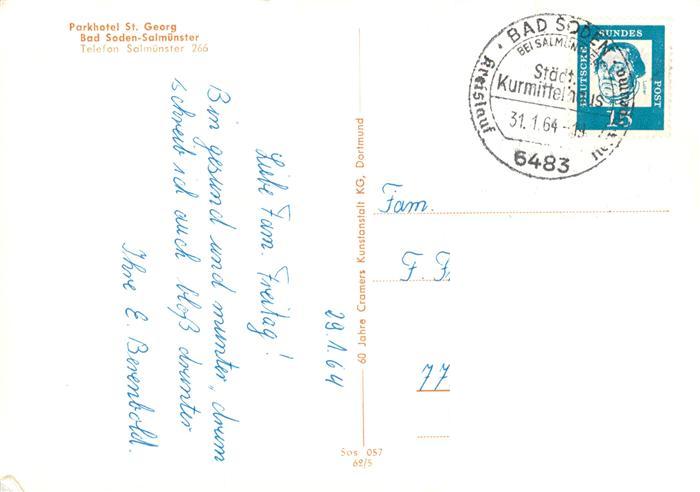 Parkhotel St. Georg
Bad Soden-Salmünster
Telefon Salmünster 266
29.1.64
Liebe Fam. Freitag!
Bin gesund und munter, drum
schreib ich auch bloß drunter
Ihre E. Berenbold.
60 Jahre Cramers Kunstanstalt KG, Dortmund
Sos 057
62/5
BAD SODEN
BEI SALMÜNSTER
Städt.
Kurmittelhaus
31.1.64
6483
Kreislauf
DEUTSCHE BUNDES POST
15
Fam.
F. F.
77